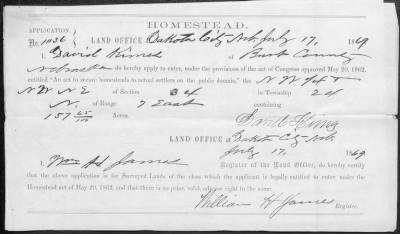 HOMESTEAD.
APPLICATION. LAND OFFICE Dakota City Neb July 17, 1869
No. 1036
I, David Himes of Burt County
Nebraska do hereby apply to enter, under the provisions of the act of Congress approved May 20, 1862,
entitled "An act to secure homesteads to actual settlers on the public domain," the
NW NE of Section 34 in Township 24
N. of Range 7 East containing
157 65/100 Acres.
LAND OFFICE at Dakota City Neb
July 17, 1869
I, Wm H James Register of the Land Office, do hereby certify
that the above application is for Surveyed Lands of the class which the applicant is legally entitled to enter under the
Homestead act of May 20, 1862, and that there is no prior, valid, adverse right to the same.
William H James
Register.